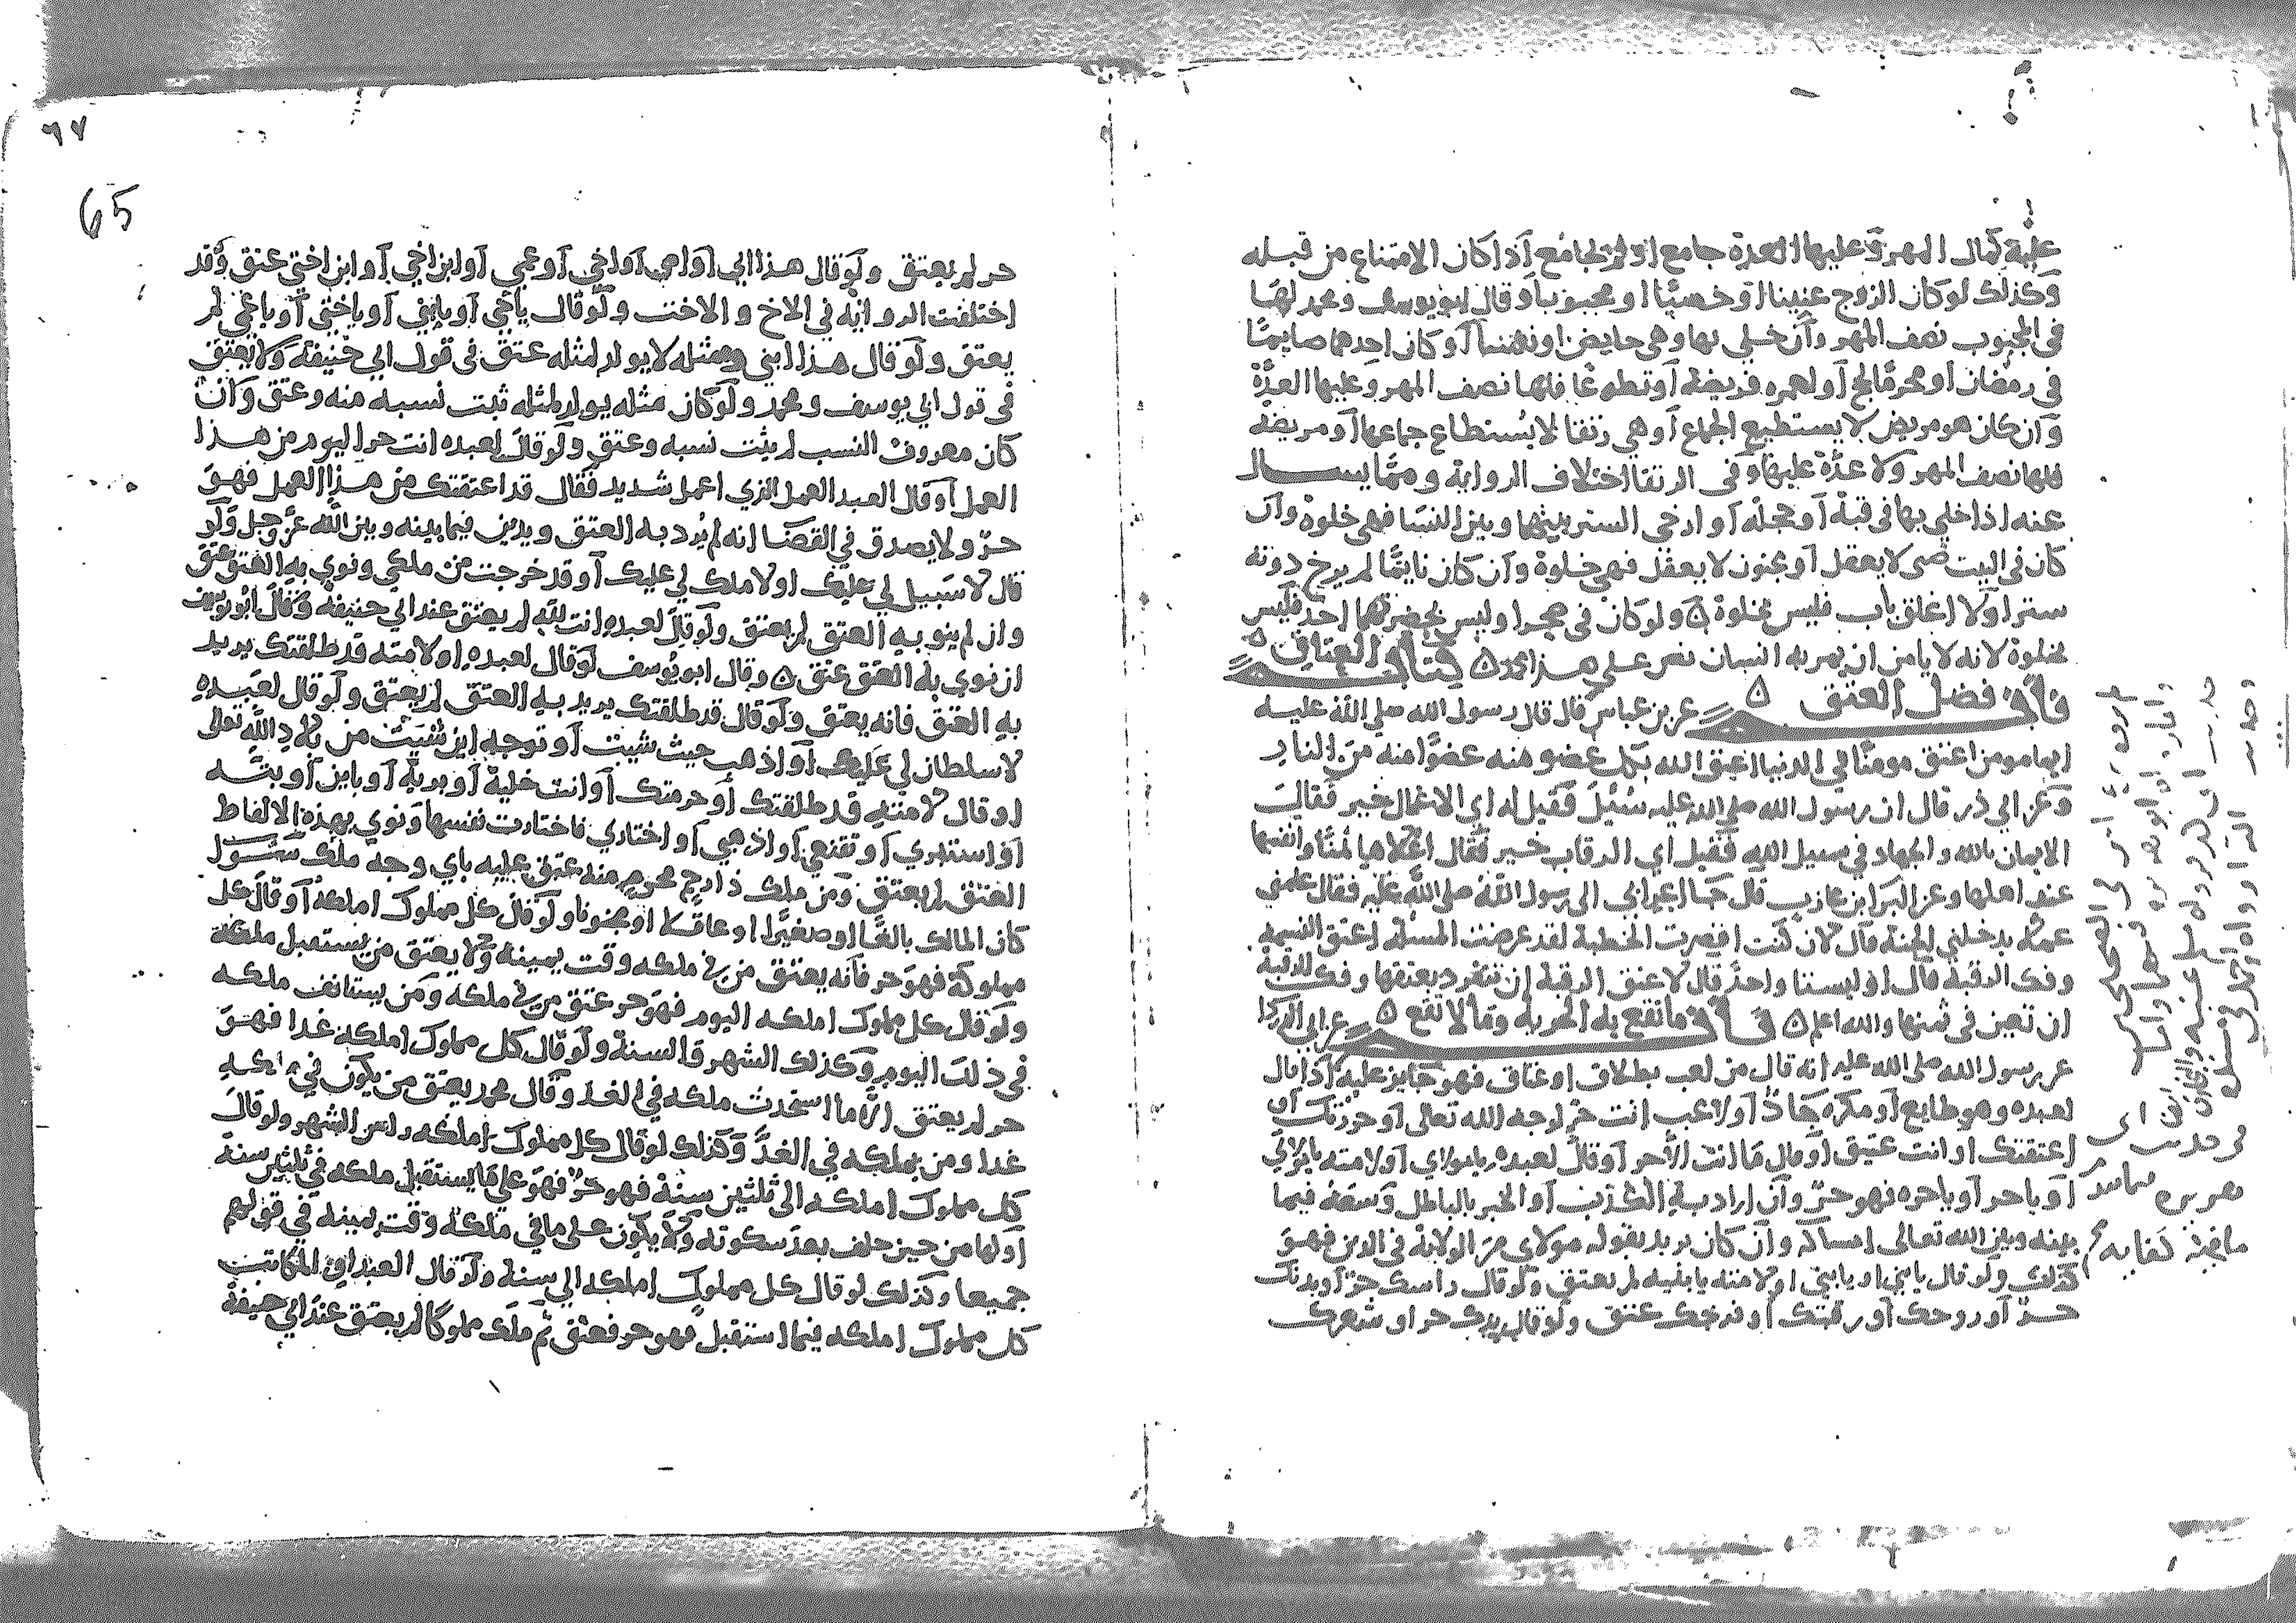 عليه كمال المهر وعليها العدة جامع او لم يجامع اذا كان الامتناع من قبله
وكذلك لو كان الزوج عنينا او خصيا او مجبوبا وقال ابو يوسف ومحمد لها
في المجبوب نصف المهر وان خلى بها وهي حايض او نفسا او كان احدهما صايما
في رمضان او محرما لحج او لعمره فريضة او تطوعا فلها نصف المهر وعليها العدة
وان كان هو مريض لا يستطيع الجماع او هي رتقا لا يستطاع جماعها او مريضة
فلها نصف المهر ولا عدة عليها وفي الرتقا اختلاف الرواية ومما يسال
عنه اذا خلى بها في قبة او حجلة او ارخى الستر بينها وبين النسا فهي خلوة وان
كان في البيت صبي لا يعقل او مجنون لا يعقل فهي خلوة وان كان نايما لم يرخ دونه
سترا ولا اغلق باب فليس بخلوة ولو كان في او ليس بحضرتهما احد فليس
بخلوة لانه لا يامن ان يمر به انسان نص على هذا محمد كتاب العتاق
باب في فضل العتق عن بن عباس قال قال رسول الله صلى الله عليه
ايما مومن اعتق مومنا في الدنيا اعتق الله بكل عضو منه عضوا منه من النار
وعن ابي ذر قال ان رسول الله صلى الله عليه سئيل فقيل له اي الاعمال خير فقال
الايمان بالله والجهاد في سبيل الله فقيل اي الرقاب خير فقال اغلاها ثمنا وانفسها
عند اهلها وعن البرا بن عازب قال جا اعرابي الى رسول الله صلى الله عليه فقال علمني
عملا يدخلني الجنة قال لان كنت اقصرت الخطبة لقد عرضت المسئلة اعتق النسمة
وفك الرقبة قال او ليستا واحد قال لا عتق الرقبة ان تنفرد بعتقها وفك الرقبة
ان تعين في ثمنها والله اعلم باب ما تقع به الحرية وما لا تقع عن ابي الدردا
عن رسول الله صلى الله عليه انه قال من لعب بطلاق او عتاق فهو جايز عليه اذا قال
لعبده وهو طايع او مكره جاد او لاعب انت حر لوجه الله تعالى او حررتك او
اعتقتك او انت عتيق او قال ما انت الا حر او قال لعبده يا مولاي او لامته يا مولاتي
او يا حر او يا حره فهو حر وان اراد به الكذب او الخبر بالباطل وسعه فيما
بينه وبين الله تعالى امساكه وان كان يريد بقوله مولاي من الولاية في الدين فهو
كذلك ولو قال يا بني او يا ابني او لامته يا بنيه لم يعتق ولو قال راسك حر او بدنك
حر او روحك او رقبتك او فرجك عتق ولو قال يدك حر او شعرك
٦٧
65
حر لم يعتق ولو قال هذا ابي او امي او اخي او عمي او ابن اخي او ابن اختي عتق وقد
اختلفت الرواية في الاخ والاخت ولو قال يا اخي او يا ابني او يا اختي او يا عمي لم
يعتق ولو قال هذا ابني ومثله لا يولد لمثله عتق في قول ابي حنيفة ولا يعتق
في قول ابي يوسف ومحمد ولو كان مثله يولد لمثله ثبت نسبه منه وعتق وان
كان معروف النسب لم يثبت نسبه وعتق ولو قال لعبده انت حر اليوم من هذا
العمل او قال العبد العمل الذي اعمل شديد فقال قد اعتقتك من هذا العمل فهو
حر ولا يصدق في القضا انه لم يرد به العتق ويدين فيما بينه وبين الله عز وجل ولو
قال لا سبيل لي عليك او لا ملك لي عليك او قد خرجت من ملكي ونوي به العتق عتق
وان لم ينو به العتق لم يعتق ولو قال لعبده انت لله لم يعتق عند ابي حنيفة وقال ابو يوسف
ان نوي به العتق عتق وقال ابو يوسف لو قال لعبده او لامته قد طلقتك يريد
به العتق فانه يعتق ولو قال قد طلقتك يريد به العتق لم يعتق ولو قال لعبده
لا سلطان لي عليك او اذهب حيث شيت او توجه اين شيت من بلاد الله تعالى
او قال لامته قد طلقتك او حرمتك او انت خلية او برية او باين او بتة
او استتري او تقنعي او اذهبي او اختاري فاختارت نفسها ونوي بهذه الالفاظ
العتق لم يعتق ومن ملك ذا رحم محرم منه عتق عليه باي وجه ملك سوا
كان المالك بالغا او صغيرا او عاقلا او مجنونا ولو قال كل مملوك املكه او قال كل
مملوك لي فهو حر فانه يعتق من في ملكه وقت يمينه ولا يعتق من يستقبل ملكه
ولو قال كل مملوك املكه اليوم فهو حر عتق من في ملكه ومن يستانف ملكه
في ذلك اليوم وكذلك الشهر والسنة ولو قال كل مملوك املكه غدا فهو
حر لم يعتق الا ما استحدث ملكه في الغد وقال محمد يعتق من يكون في ملكه
غدا ومن يملكه في الغد وكذلك لو قال كل مملوك املكه راس الشهر ولو قال
كل مملوك املكه الى ثلثين سنة فهو حر فهو على ما يستقبل ملكه في ثلثين سنة
اولها من حين حلف بعد سكوته ولا يكون على ما في ملكه وقت يمينه في قولهم
جميعا وكذلك لو قال كل مملوك املكه الى سنة ولو قال العبد او المكاتب
كل مملوك املكه فيما استقبل فهو حر فعتق ثم ملك مملوكا لم يعتق عند ابي حنيفة